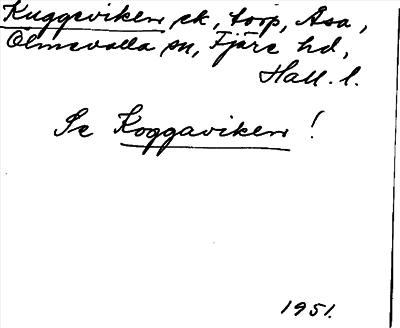 Kuggeviken ek, torp, Åsa,
Ölmevalla sn, Fjäre hd,
Hall. l.
Se Koggaviken !
1951.